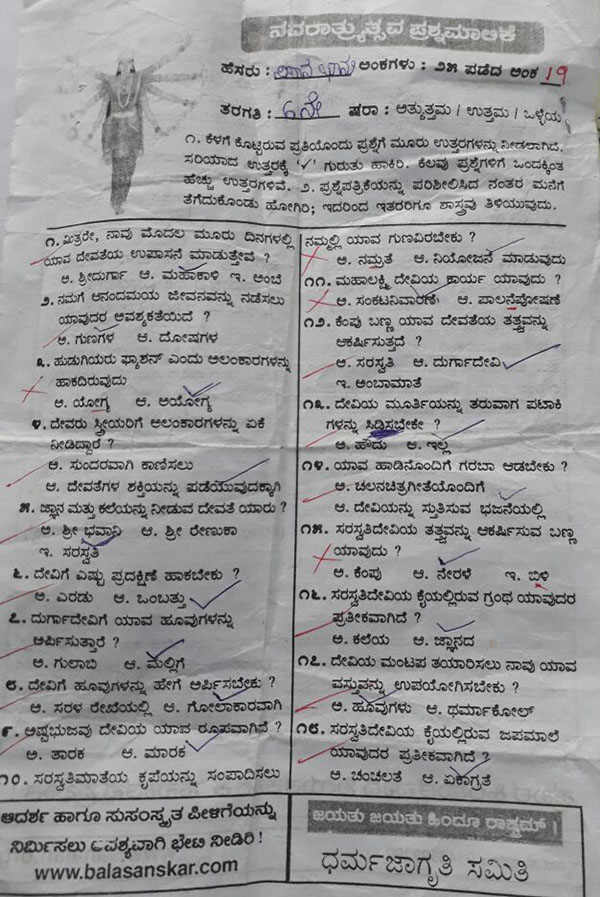 ನವರಾತ್ರ್ಯುತ್ಸವ ಪ್ರಶ್ನಮಾಲಿಕೆ
ಹೆಸರು : ಅಂಕಗಳು : ೨೫ ಪಡೆದ ಅಂಕ 19
ತರಗತಿ : ೬ನೇ ಷರಾ : ಅತ್ಯುತ್ತಮ / ಉತ್ತಮ / ಒಳ್ಳೆಯ
೧. ಕೆಳಗೆ ಕೊಟ್ಟಿರುವ ಪ್ರತಿಯೊಂದು ಪ್ರಶ್ನೆಗೆ ಮೂರು ಉತ್ತರಗಳನ್ನು ನೀಡಲಾಗಿದೆ.
ಸರಿಯಾದ ಉತ್ತರಕ್ಕೆ '✓' ಗುರುತು ಹಾಕಿರಿ. ಕೆಲವು ಪ್ರಶ್ನೆಗಳಿಗೆ ಒಂದಕ್ಕಿಂತ
ಹೆಚ್ಚು ಉತ್ತರಗಳಿವೆ. ೨. ಪ್ರಶ್ನಪತ್ರಿಕೆಯನ್ನು ಪರಿಶೀಲಿಸಿದ ನಂತರ ಮನೆಗೆ
ತೆಗೆದುಕೊಂಡು ಹೋಗಿರಿ; ಇದರಿಂದ ಇತರರಿಗೂ ಶಾಸ್ತ್ರವು ತಿಳಿಯುವುದು.
೧. ಮಿತ್ರರೇ, ನಾವು ಮೊದಲ ಮೂರು ದಿನಗಳಲ್ಲಿ
ಯಾವ ದೇವತೆಯ ಉಪಾಸನೆ ಮಾಡುತ್ತೇವೆ ?
ಅ. ಶ್ರೀದುರ್ಗಾ ಆ. ಮಹಾಕಾಳಿ ಇ. ಅಂಬೆ
೨. ನಮಗೆ ಆನಂದಮಯ ಜೀವನವನ್ನು ನಡೆಸಲು
ಯಾವುದರ ಅವಶ್ಯಕತೆಯಿದೆ ?
ಅ. ಗುಣಗಳ ಆ. ದೋಷಗಳ
೩. ಹುಡುಗಿಯರು ಫ್ಯಾಶನ್ ಎಂದು ಅಲಂಕಾರಗಳನ್ನು
ಹಾಕದಿರುವುದು
ಅ. ಯೋಗ್ಯ ಆ. ಅಯೋಗ್ಯ
೪. ದೇವರು ಸ್ತ್ರೀಯರಿಗೆ ಅಲಂಕಾರಗಳನ್ನು ಏಕೆ
ನೀಡಿದ್ದಾರೆ ?
ಅ. ಸುಂದರವಾಗಿ ಕಾಣಿಸಲು
ಆ. ದೇವತೆಗಳ ಶಕ್ತಿಯನ್ನು ಪಡೆಯುವುದಕ್ಕಾಗಿ
೫. ಜ್ಞಾನ ಮತ್ತು ಕಲೆಯನ್ನು ನೀಡುವ ದೇವತೆ ಯಾರು ?
ಅ. ಶ್ರೀ ಭವಾನಿ ಆ. ಶ್ರೀ ರೇಣುಕಾ
ಇ. ಸರಸ್ವತಿ
೬. ದೇವಿಗೆ ಎಷ್ಟು ಪ್ರದಕ್ಷಿಣೆ ಹಾಕಬೇಕು ?
ಅ. ಎರಡು ಆ. ಒಂಬತ್ತು
೭. ದುರ್ಗಾದೇವಿಗೆ ಯಾವ ಹೂವುಗಳನ್ನು
ಅರ್ಪಿಸುತ್ತಾರೆ ?
ಅ. ಗುಲಾಬಿ ಆ. ಮಲ್ಲಿಗೆ
೮. ದೇವಿಗೆ ಹೂವುಗಳನ್ನು ಹೇಗೆ ಅರ್ಪಿಸಬೇಕು ?
ಅ. ಸರಳ ರೇಖೆಯಲ್ಲಿ ಆ. ಗೋಲಾಕಾರವಾಗಿ
೯. ಅಷ್ಟಭುಜವು ದೇವಿಯ ಯಾವ ರೂಪವಾಗಿದೆ ?
ಅ. ತಾರಕ ಆ. ಮಾರಕ
೧೦. ಸರಸ್ವತಿಮಾತೆಯ ಕೃಪೆಯನ್ನು ಸಂಪಾದಿಸಲು
ನಮ್ಮಲ್ಲಿ ಯಾವ ಗುಣವಿರಬೇಕು ?
ಅ. ನಮ್ರತೆ ಆ. ನಿಯೋಜನೆ ಮಾಡುವುದು
೧೧. ಮಹಾಲಕ್ಷ್ಮಿ ದೇವಿಯ ಕಾರ್ಯ ಯಾವುದು ?
ಅ. ಸಂಕಟನಿವಾರಣೆ ಆ. ಪಾಲನೆಪೋಷಣೆ
೧೨. ಕೆಂಪು ಬಣ್ಣ ಯಾವ ದೇವತೆಯ ತತ್ತ್ವವನ್ನು
ಆಕರ್ಷಿಸುತ್ತದೆ ?
ಅ. ಸರಸ್ವತಿ ಆ. ದುರ್ಗಾದೇವಿ
ಇ. ಅಂಬಾಮಾತೆ
೧೩. ದೇವಿಯ ಮೂರ್ತಿಯನ್ನು ತರುವಾಗ ಪಟಾಕಿ
ಗಳನ್ನು ಸಿಡಿಸಬೇಕೇ ?
ಅ. ಹೌದು ಆ. ಇಲ್ಲ
೧೪. ಯಾವ ಹಾಡಿನೊಂದಿಗೆ ಗರಬಾ ಆಡಬೇಕು ?
ಅ. ಚಲನಚಿತ್ರಗೀತೆಯೊಂದಿಗೆ
ಆ. ದೇವಿಯನ್ನು ಸ್ತುತಿಸುವ ಭಜನೆಯಲ್ಲಿ
೧೫. ಸರಸ್ವತಿದೇವಿಯ ತತ್ತ್ವವನ್ನು ಆಕರ್ಷಿಸುವ ಬಣ್ಣ
ಯಾವುದು ?
ಅ. ಕೆಂಪು ಆ. ನೇರಳೆ ಇ. ಬಿಳಿ
೧೬. ಸರಸ್ವತಿದೇವಿಯ ಕೈಯಲ್ಲಿರುವ ಗ್ರಂಥ ಯಾವುದರ
ಪ್ರತೀಕವಾಗಿದೆ ?
ಅ. ಕಲೆಯ ಆ. ಜ್ಞಾನದ
೧೭. ದೇವಿಯ ಮಂಟಪ ತಯಾರಿಸಲು ನಾವು ಯಾವ
ವಸ್ತುವನ್ನು ಉಪಯೋಗಿಸಬೇಕು ?
ಅ. ಹೂವುಗಳು ಆ. ಥರ್ಮಾಕೋಲ್
೧೮. ಸರಸ್ವತಿದೇವಿಯ ಕೈಯಲ್ಲಿರುವ ಜಪಮಾಲೆ
ಯಾವುದರ ಪ್ರತೀಕವಾಗಿದೆ ?
ಅ. ಚಂಚಲತೆ ಆ. ಏಕಾಗ್ರತೆ
ಆದರ್ಶ ಹಾಗೂ ಸುಸಂಸ್ಕೃತ ಪೀಳಿಗೆಯನ್ನು
ನಿರ್ಮಿಸಲು ಅವಶ್ಯವಾಗಿ ಭೇಟಿ ನೀಡಿರಿ !
www.balasanskar.com
ಜಯತು ಜಯತು ಹಿಂದೂ ರಾಷ್ಟ್ರಮ್ !
ಧರ್ಮಜಾಗೃತಿ ಸಮಿತಿ